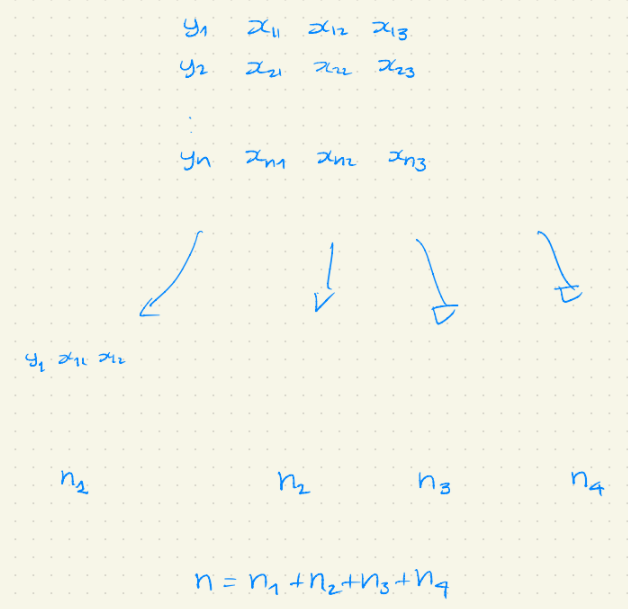 y₁ x₁₁ x₁₂ x₁₃
y₂ x₂₁ x₂₂ x₂₃
⋮
yₙ xₙ₁ xₙ₂ xₙ₃
y₁ x₁₁ x₁₂
n₁ n₂ n₃ n₄
n = n₁ + n₂ + n₃ + n₄